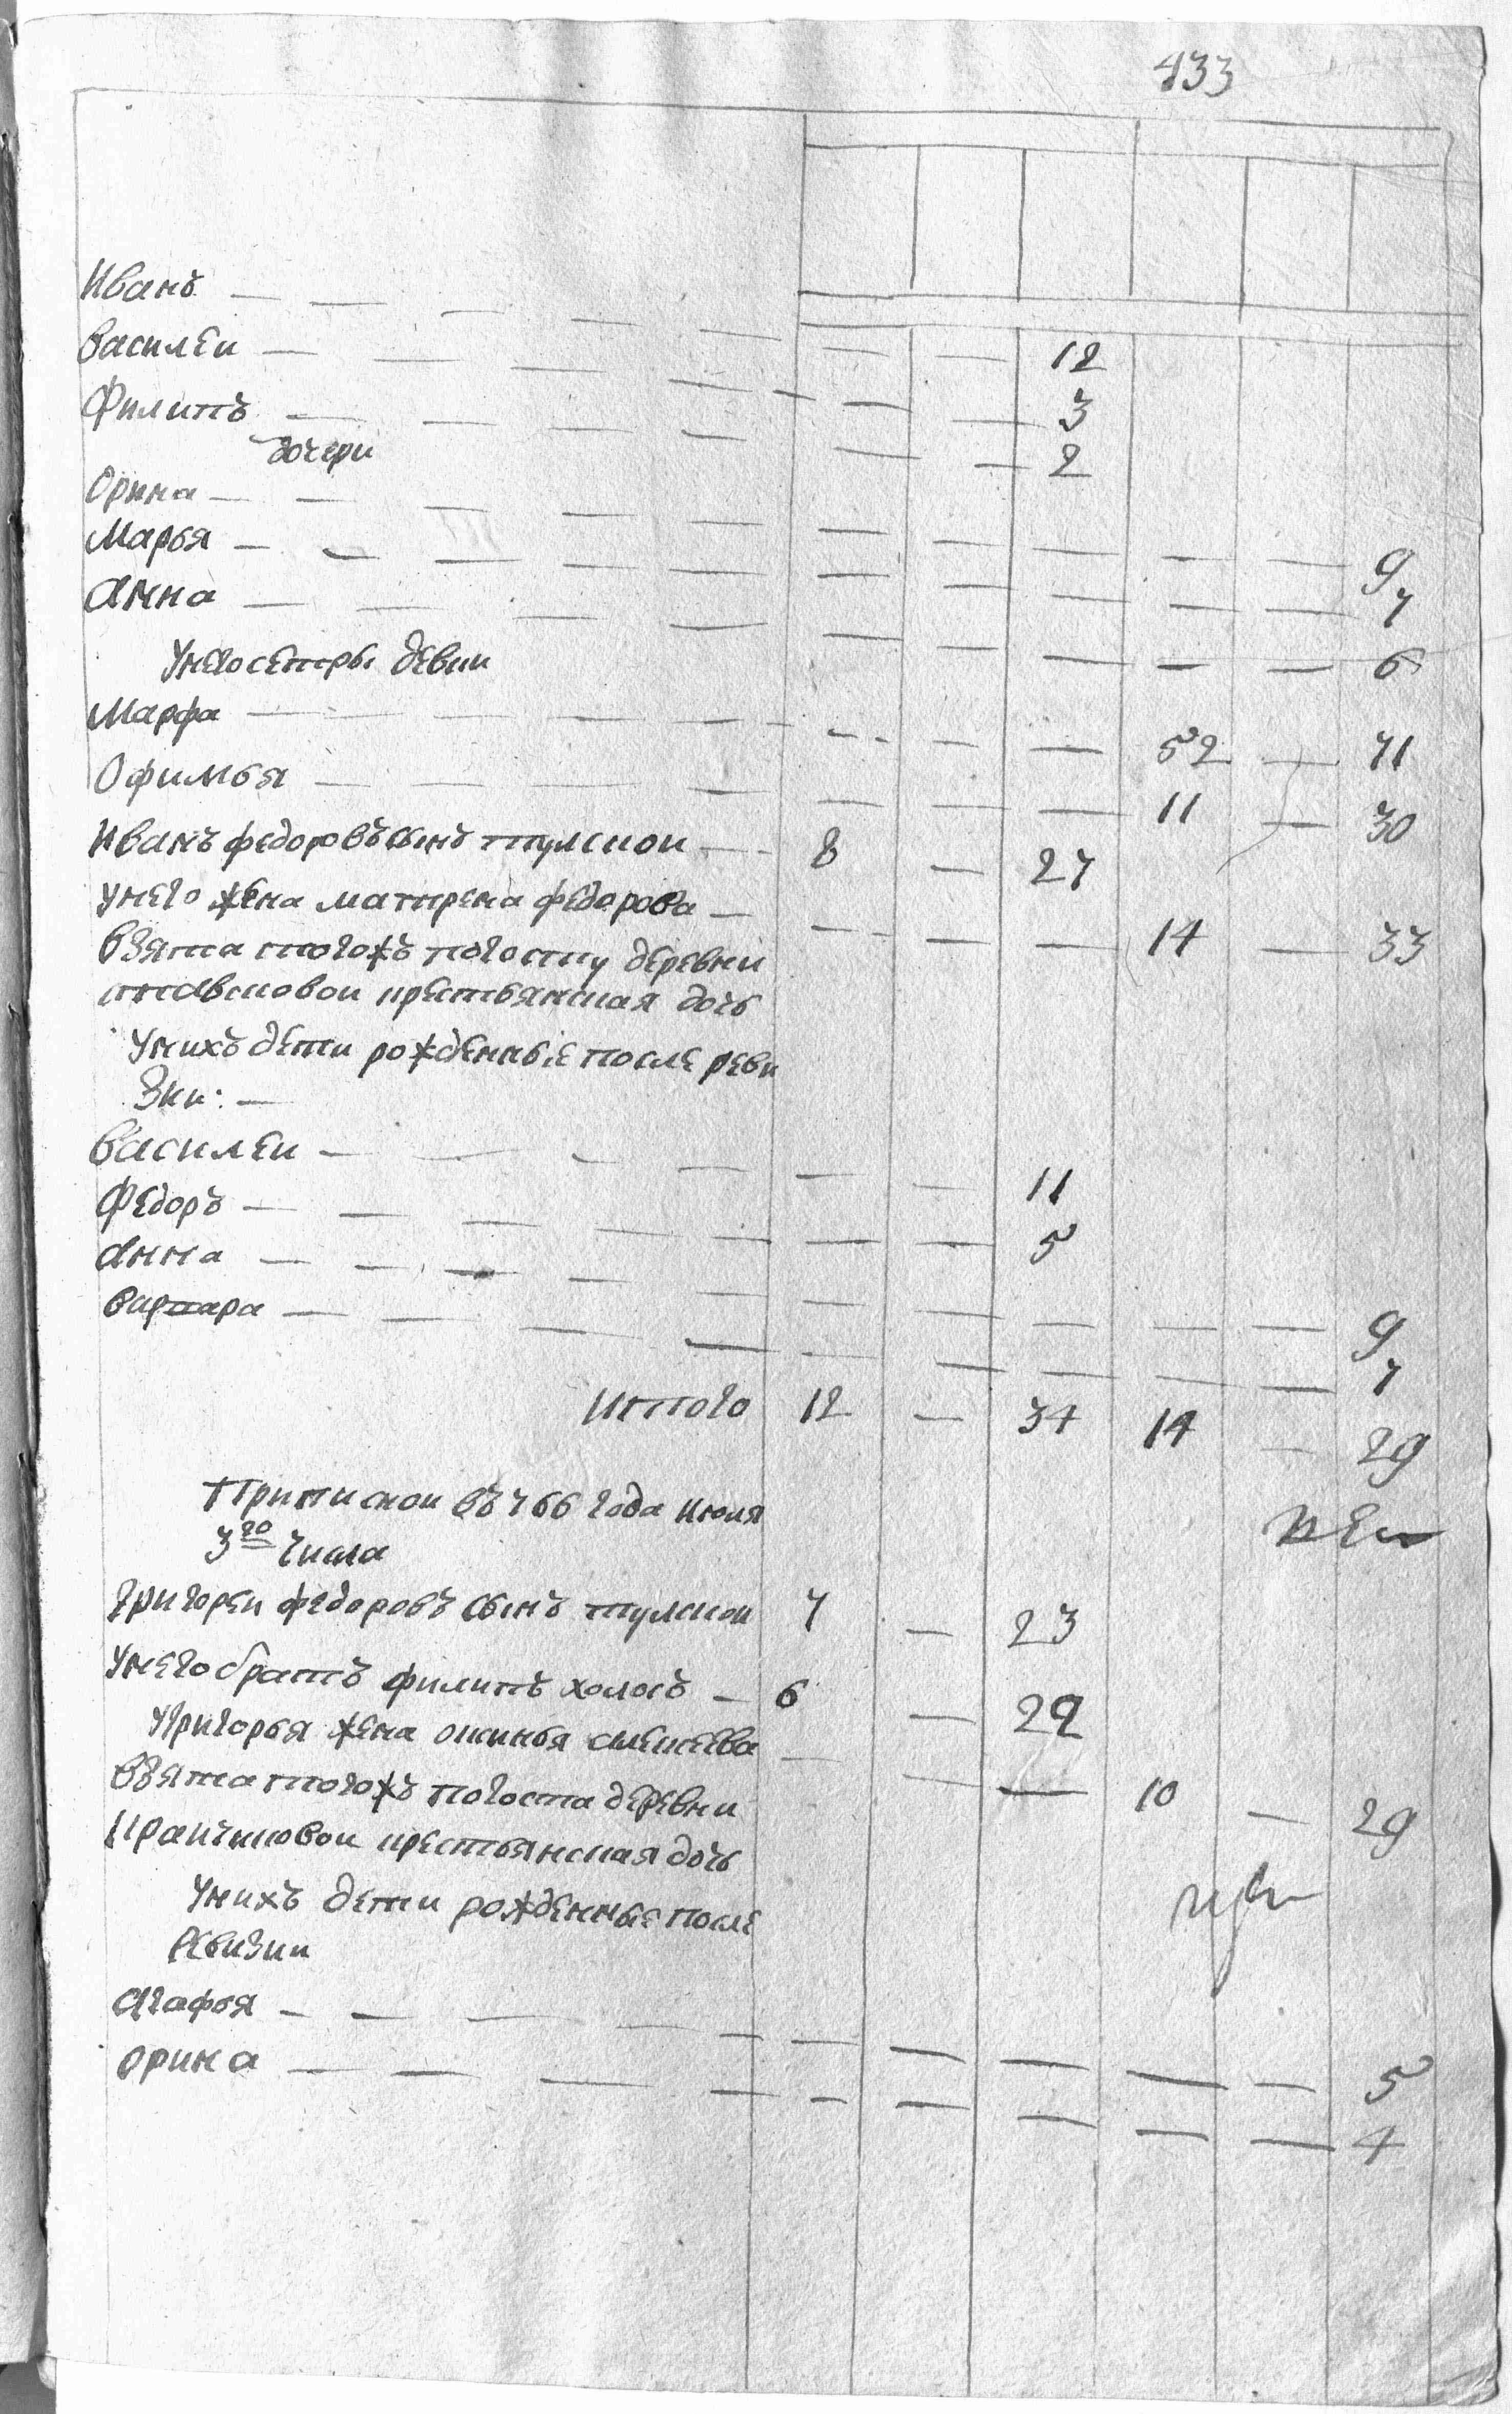 433
Иванъ — — — — — — — — 12
Василеи — — — — — — — 3
Филипъ — — — — — — — 2
дочери
Орина — — — — — — — — — — — 9
Марья — — — — — — — — — — — 7
Анна — — — — — — — — — — 6
У него сестры девки
Марфа — — — — — — — — 52 — 71
Офимья — — — — — — — 11 — 30
Иванъ федоровъ сынъ тулскои — 8 — 27
у него жена матрена федорова — — — — 14 — 33
взята тогожъ погосту деревни
крестьянская дочь
У нихъ дети рожденные после реви
зии: —
Василеи — — — — — — 11
Федоръ — — — — — — — 5
Анна — — — — — — — — — — 9
Варвара — — — — — — — — — 7
Итого 12 — 34 14 — 29
Припискои въ 766 года июля
3го числа
Григореи федоровъ сынъ тулскои 7 — 23
У него братъ филипъ холостъ — 6 — 22
У Григорья жена алексеева — — — 10 — 29
взята тогожъ погоста деревни
крестьянская дочь
У нихъ дети рожденные после
Ревизии
Агафья — — — — — — — — — — 5
Орина — — — — — — — — — 4